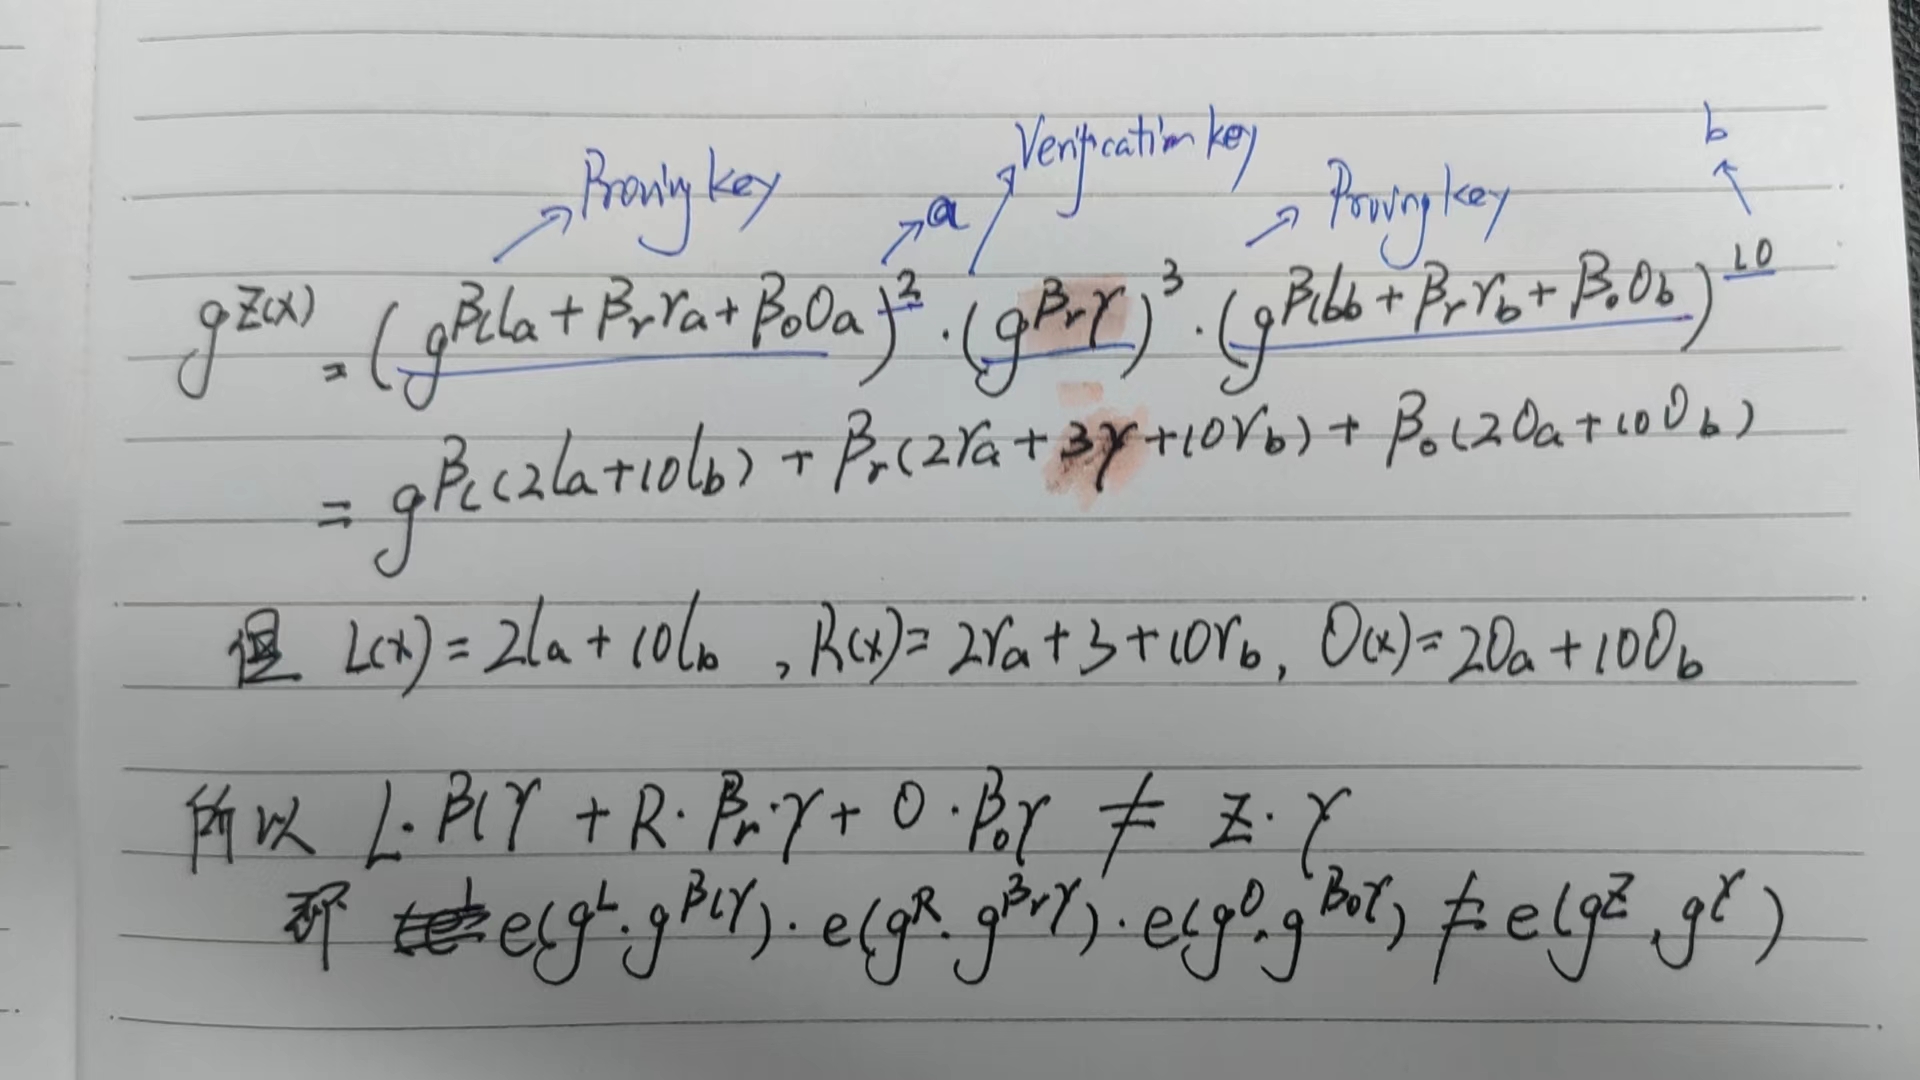 Proving key
a
Verification key
Proving key
b
g^{Z(x)} = (g^{βₗlₐ + βᵣrₐ + βₒOₐ})² · (g^{βᵣγ})³ · (g^{βₗl_b + βᵣr_b + βₒO_b})^{10}
= g^{βₗ(2lₐ+10l_b) + βᵣ(2rₐ+3γ+10r_b) + βₒ(2Oₐ+10O_b)}
但 L(x) = 2lₐ + 10l_b , R(x) = 2rₐ + 3 + 10r_b, O(x) = 2Oₐ + 10O_b
所以 L · βₗγ + R · βᵣ · γ + O · βₒγ ≠ Z · γ
即 e(g^L · g^{βₗγ}) · e(g^R · g^{βᵣγ}) · e(g^O , g^{βₒγ}) ≠ e(g^Z , g^γ)